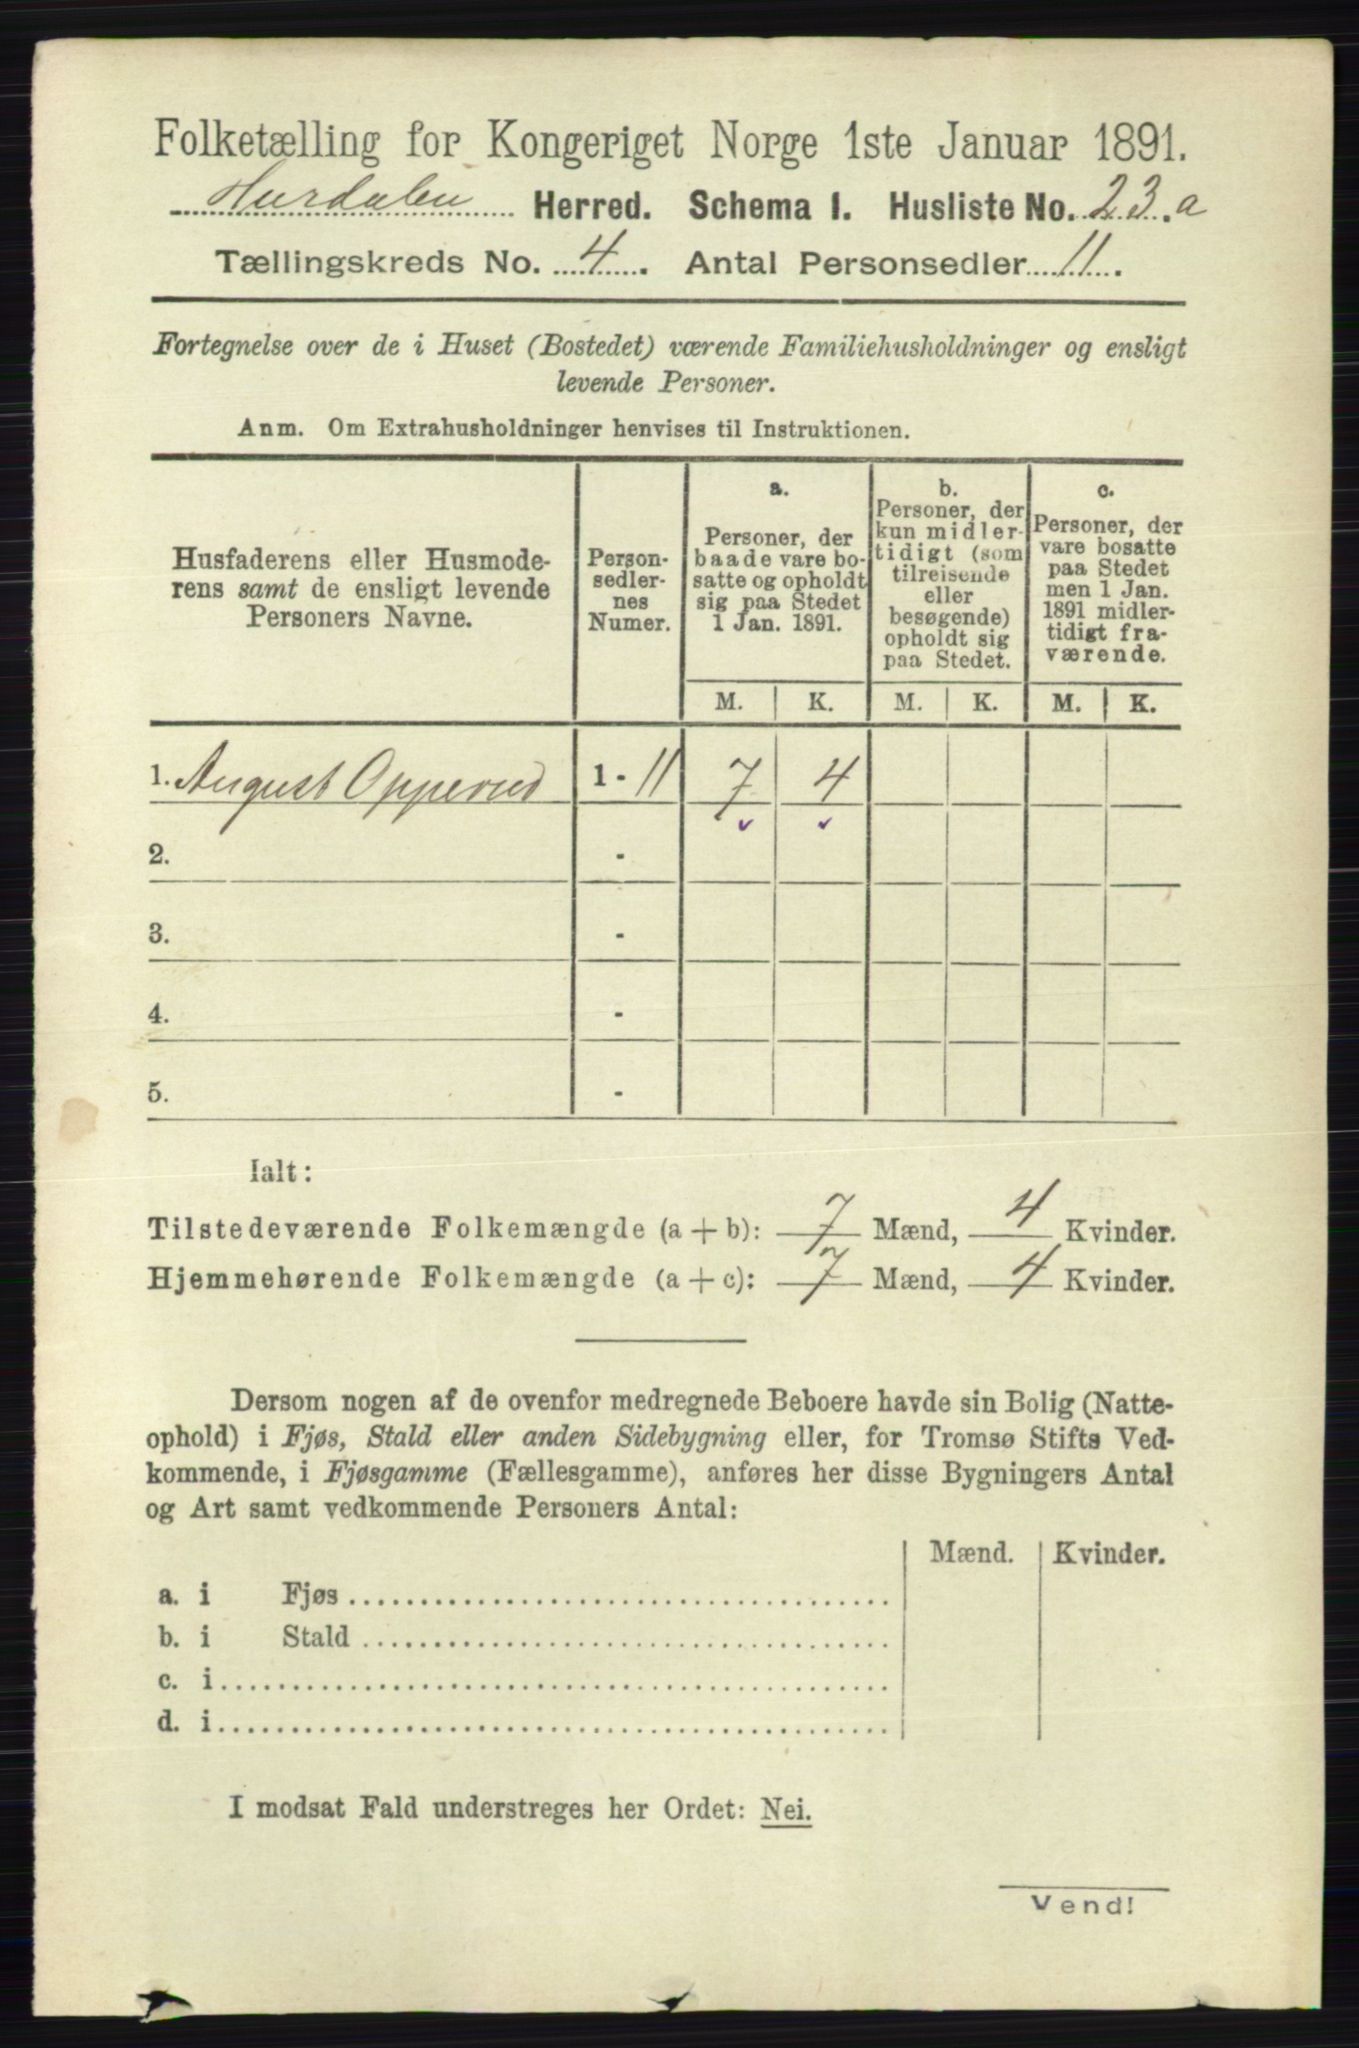 Folketælling for Kongeriget Norge 1ste Januar 1891.
Hurdalen Herred. Schema I. Husliste No. 23.a
Tællingskreds No. 4. Antal Personsedler 11.
Fortegnelse over de i Huset (Bostedet) værende Familiehusholdninger og ensligt
levende Personer.
Anm. Om Extrahusholdninger henvises til Instruktionen.
Husfaderens eller Husmode-
rens samt de ensligt levende
Personers Navne.
Person-
sedler-
nes
Numer.
a.
Personer, der
baade vare bo-
satte og opholdt
sig paa Stedet
1 Jan. 1891.
b.
Personer, der
kun midler-
tidigt (som
tilreisende
eller
besøgende)
opholdt sig
paa Stedet.
c.
Personer, der
vare bosatte
paa Stedet
men 1 Jan.
1891 midler-
tidigt fra-
værende.
M. K. M. K. M. K.
1. August Opperud 1 - 11 7 4
2. -
3. -
4. -
5. -
Ialt:
Tilstedeværende Folkemængde (a + b): 7 Mænd, 4 Kvinder.
Hjemmehørende Folkemængde (a + c): 7 Mænd, 4 Kvinder.
Dersom nogen af de ovenfor medregnede Beboere havde sin Bolig (Natte-
ophold) i Fjøs, Stald eller anden Sidebygning eller, for Tromsø Stifts Ved-
kommende, i Fjøsgamme (Fællesgamme), anføres her disse Bygningers Antal
og Art samt vedkommende Personers Antal:
Mænd. Kvinder.
a. i Fjøs
b. i Stald
c. i
d. i
I modsat Fald understreges her Ordet: Nei.
Vend!